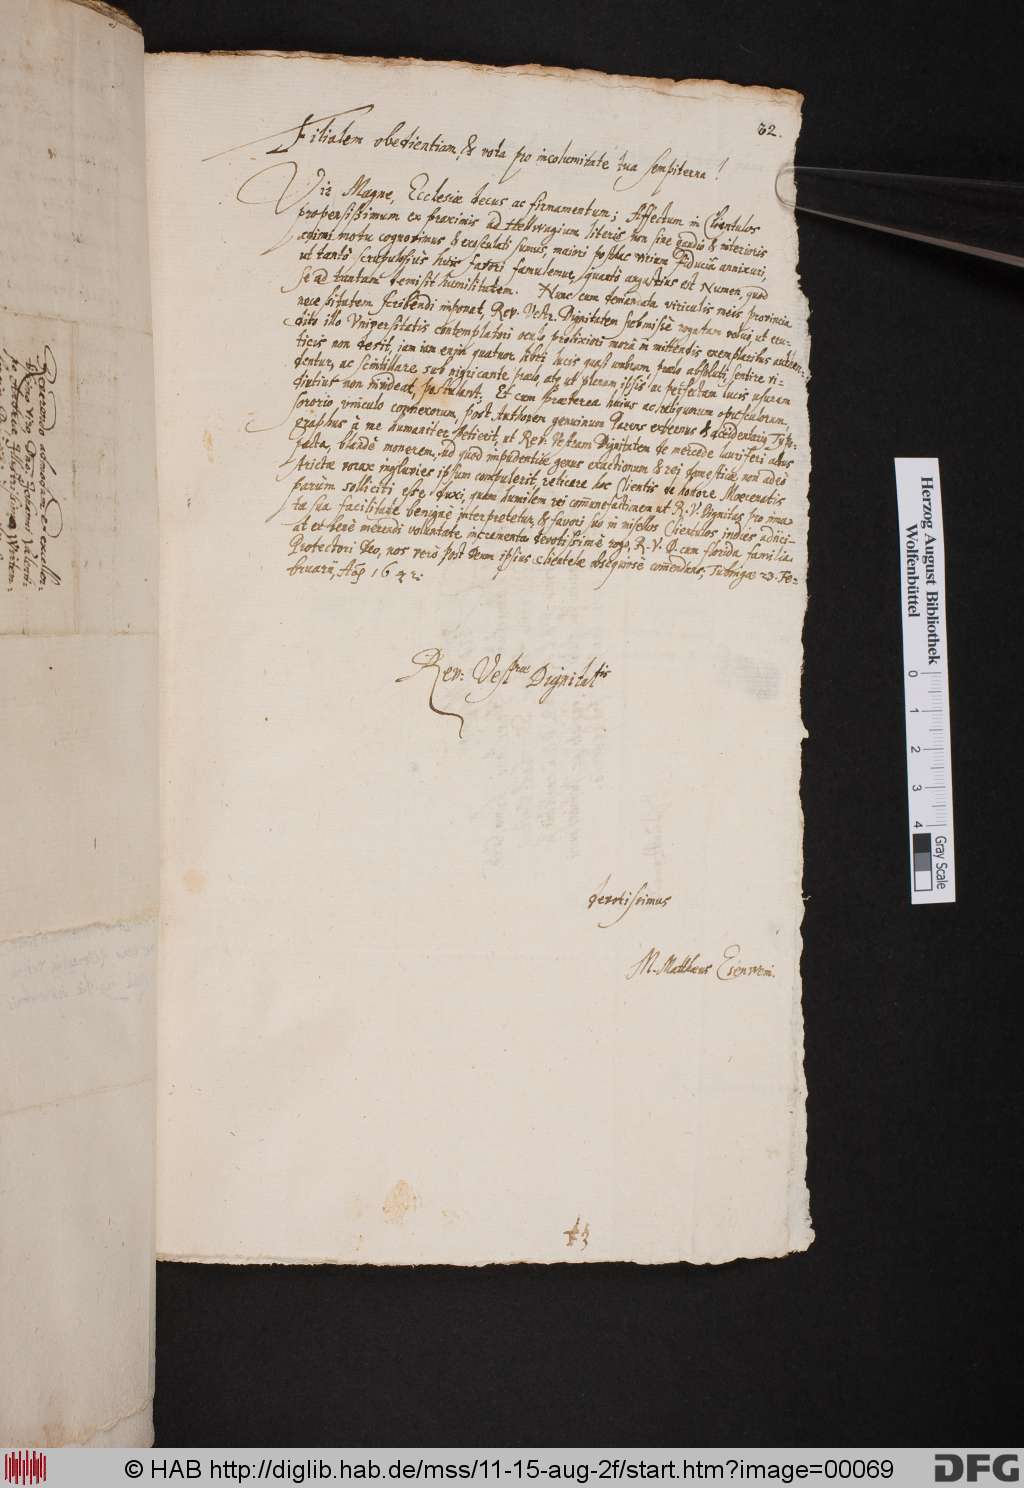 32.
Filialem obedientiam, & vota pro incolumitate tua sempiterna!
Vir Magne, Ecclesiæ decus ac firmamentum; Affectum in Clientulos
propensissimum ex proximis ad Hellwagium literis non sine gaudio & interioris
animi motu cognovimus & exosculati sumus, maiori posthac vitam fiduciâ annixuri,
ut tantò scrupulosius huic favori famulemur, quantò angustius est Numen, quod
se ad tantam demisit humilitatem. Nunc cum temerata viriculis meis provincia
necessitatem scribendi imponat, Rev. Vestr. Dignitatem submissè rogatam volui, ut eru-
dito illo Vniversitatis contemplatori oculo prolixiori morâ in mittendis exemplaribus
ticus non desit, iam iam enim quatuor libri lucis quasi umbram, prælo absoluti, sentire vi-
dentur, ac scintillare sub nigricante prælo, atq; ut plenam ipsis ac perfectam lucis usuram
diutius non invideat, postulant. Et cum præterea huius ac reliquorum opusculorum,
sororio vinculo connexorum, post Authorem genuinum Parens externus & accidentarius Typo-
graphus à me humaniter petierit, ut Rev. Vestram Dignitatem de mercede
pacta, blandè monerem, ad quod impudentiæ genus exactionum & rei domesticæ non adeò
strictæ vorax ingluvies ipsum compulerit, reticere hoc Clientis de honore Mœcenatis
parùm solliciti esse duxi, quàm humilem rei com̃onefactionem ut R. V. Dignitas pro inna-
ta sua facilitate benignè interpretetur, & favori suo in misellos Clientulos indies adiici-
at et benè merendi voluntate incrementa devotissimè rogo, R. V. D. cum florida familia
Protectori Deo, nos verò post Deum ipsius clientelæ obsequiose com̃endans, Tubingæ 23. Fe-
bruarii, Aõ 1642.
Rev: Vestræ Dignitatis
devotissimus
M. Matthæus Esenwein.
Reverendo admodum et excellen-
tissimo Viro, Dño. Johanni Valenti-
no Andreæ
Herzog August Bibliothek
Wolfenbüttel
0 1 2 3 4
Gray Scale
© HAB http://diglib.hab.de/mss/11-15-aug-2f/start.htm?image=00069
DFG